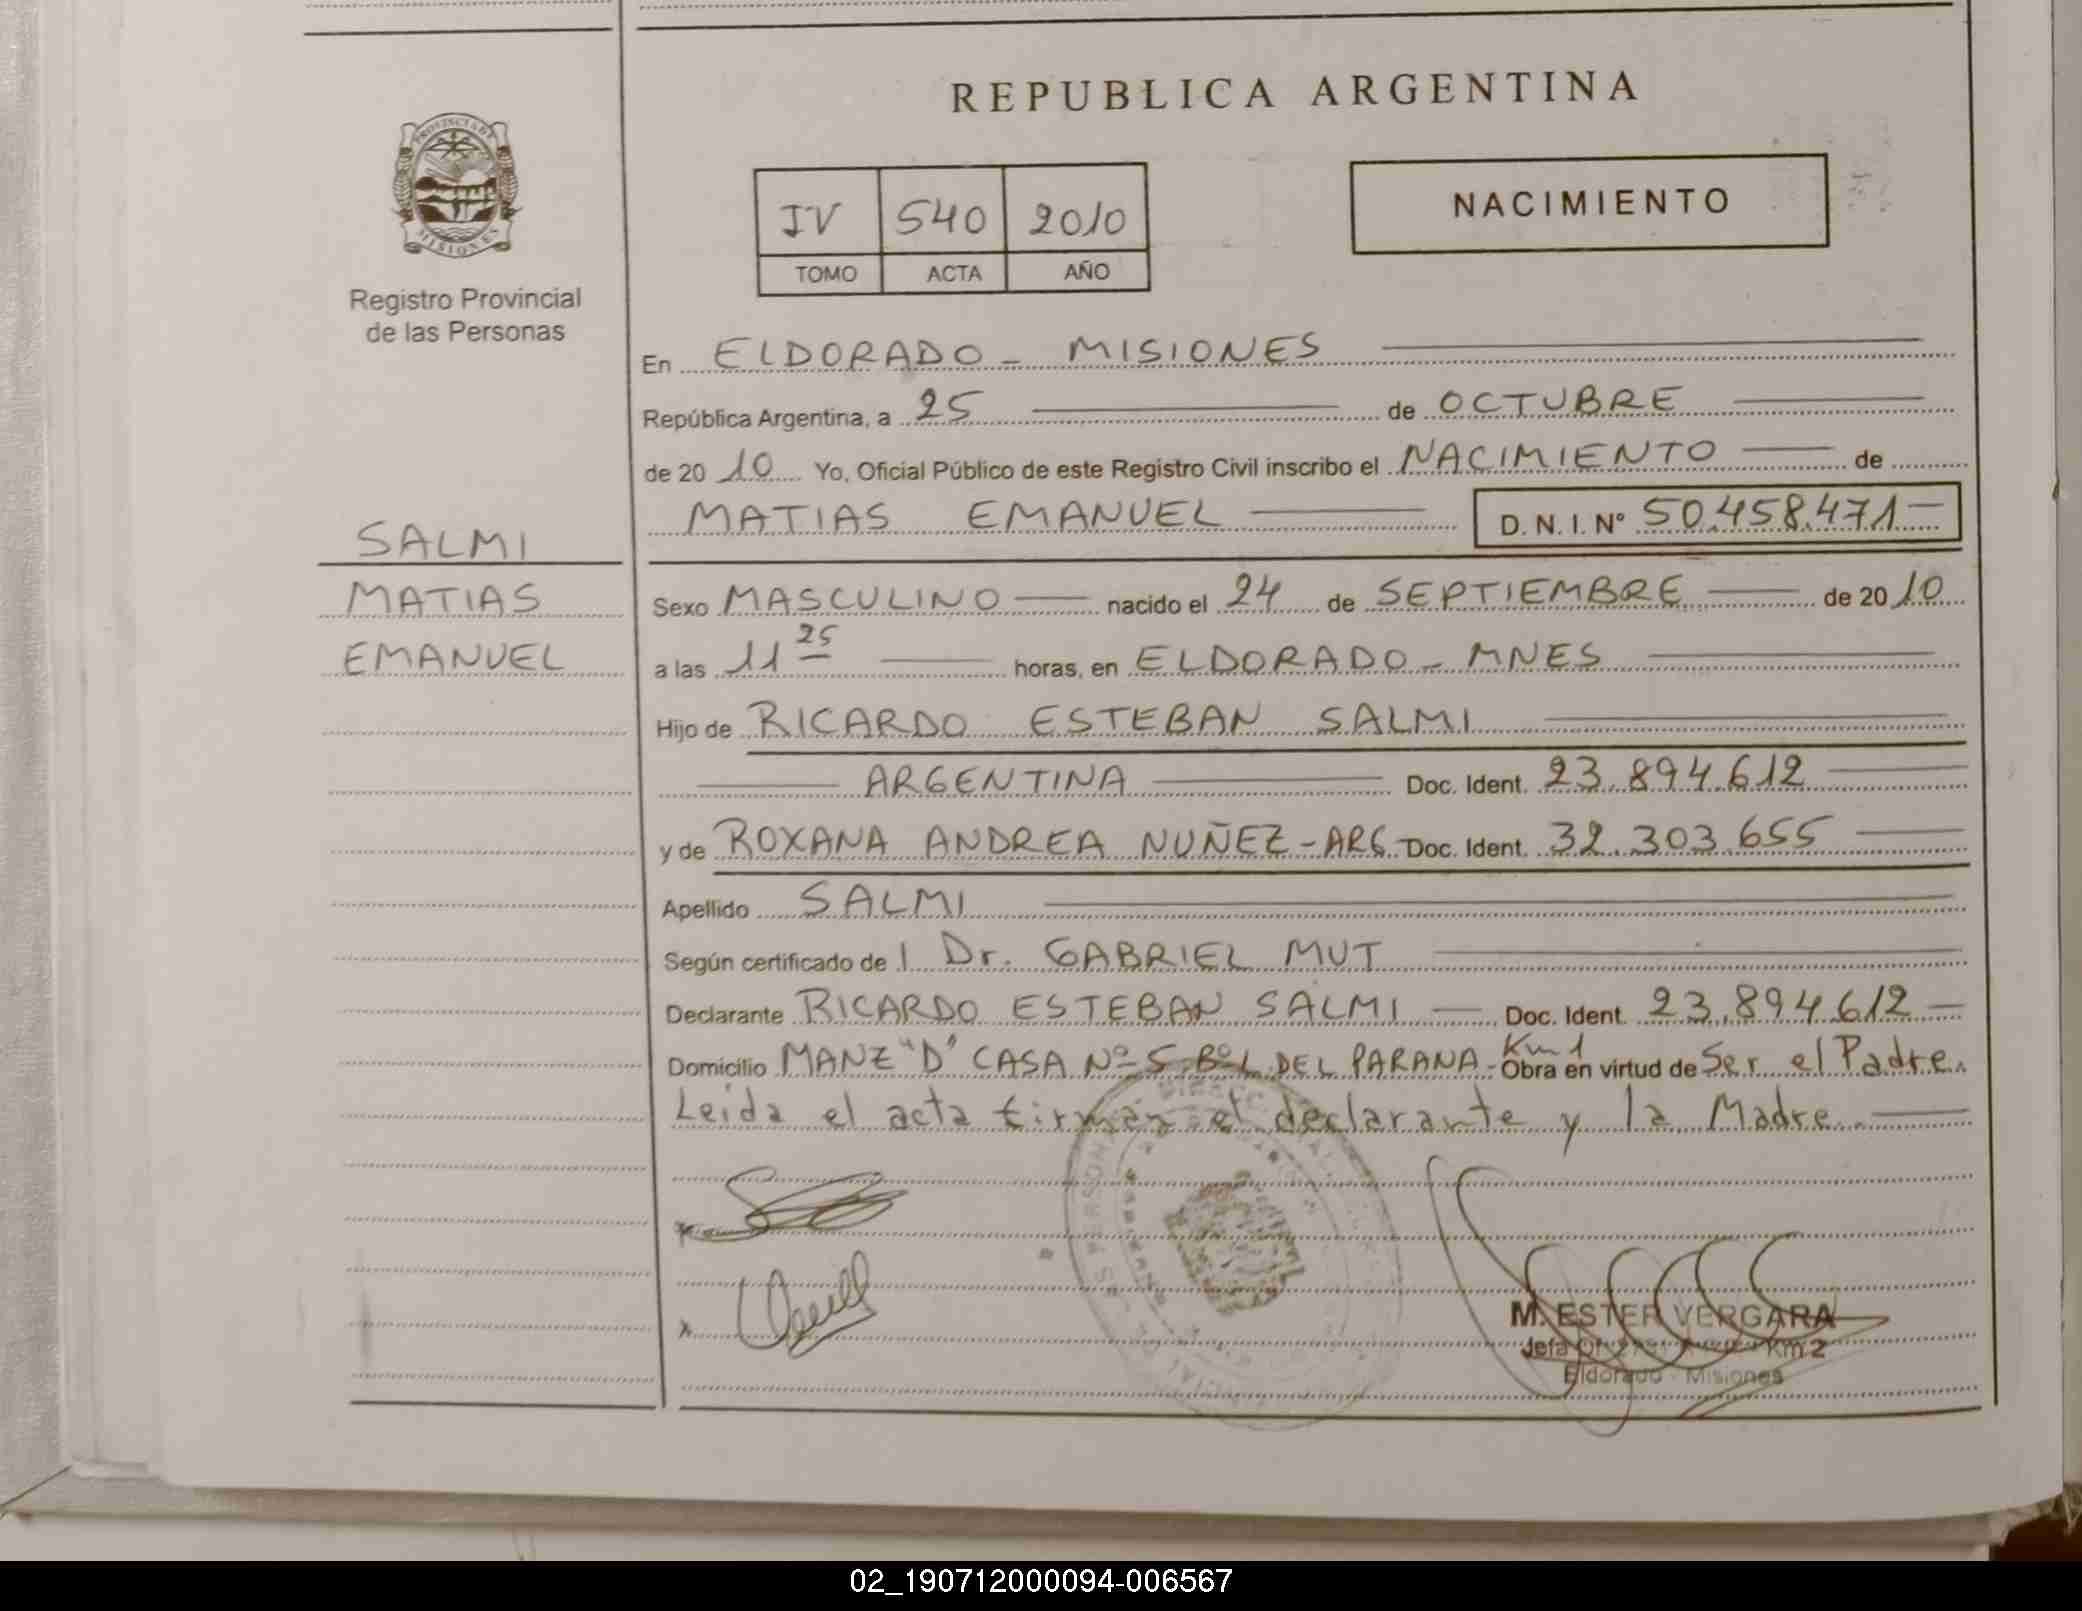 REPUBLICA ARGENTINA
PROVINCIA DE
MISIONES
Registro Provincial
de las Personas
IV 540 2010
TOMO ACTA AÑO
NACIMIENTO
En ELDORADO - MISIONES
República Argentina, a 25 de OCTUBRE
de 2010 Yo, Oficial Público de este Registro Civil inscribo el NACIMIENTO de
MATIAS EMANUEL D. N. I. Nº 50.458.471
SALMI
MATIAS
EMANUEL
Sexo MASCULINO nacido el 24 de SEPTIEMBRE de 2010
a las 11 25 horas, en ELDORADO - MNES
Hijo de RICARDO ESTEBAN SALMI
ARGENTINA Doc. Ident. 23.894.612
y de ROXANA ANDREA NUÑEZ - ARG. Doc. Ident. 32.303.655
Apellido SALMI
Según certificado de l Dr. GABRIEL MUT
Declarante RICARDO ESTEBAN SALMI Doc. Ident. 23.894.612
Domicilio MANZ "D" CASA Nº 5 Bº L. DEL PARANA - Km 1 Obra en virtud de Ser el Padre.
Leida el acta firman el declarante y la Madre.
M. ESTER VERGARA
Jefa Km 2
Eldorado - Misiones
02_190712000094-006567